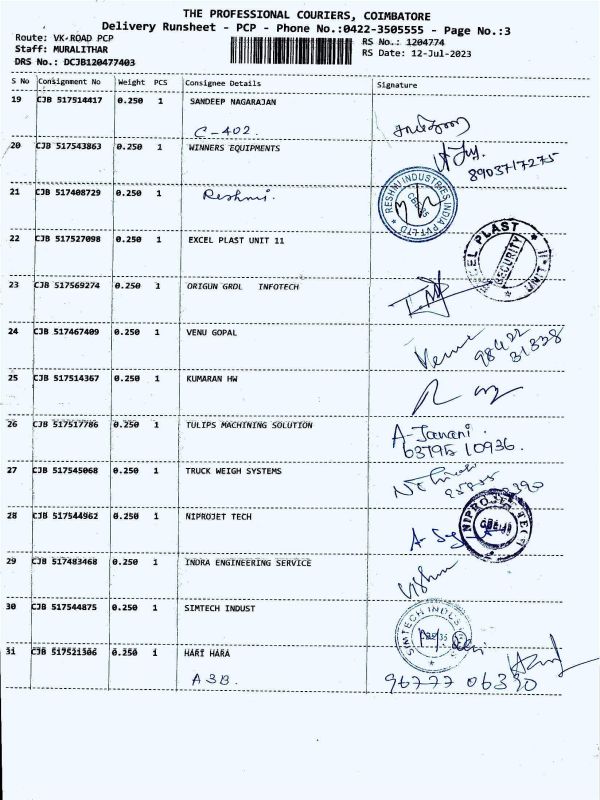 THE PROFESSIONAL COURIERS, COIMBATORE
Delivery Runsheet - PCP - Phone No.:0422-3505555 - Page No.:3
Route: VK-ROAD PCP
RS No.: 1204774
Staff: MURALITHAR
RS Date: 12-Jul-2023
DRS No.: DCJB120477403
S No Consignment No Weight PCS Consignee Details Signature
19 CJB 517514417 0.250 1 SANDEEP NAGARAJAN
C-402.
20 CJB 517543863 0.250 1 WINNERS EQUIPMENTS
8903717275
21 CJB 517408729 0.250 1 Reshmi.
RESHMI INDUSTRIES INDIA PVT LTD
22 CJB 517527098 0.250 1 EXCEL PLAST UNIT 11
EXCEL PLAST II UNIT
SECURITY
23 CJB 517569274 0.250 1 ORIGUN GRDL INFOTECH
24 CJB 517467409 0.250 1 VENU GOPAL
Venu 98422
31338
25 CJB 517514367 0.250 1 KUMARAN HW
26 CJB 517517786 0.250 1 TULIPS MACHINING SOLUTION
A-Janani.
63795 10936.
27 CJB 517545068 0.250 1 TRUCK WEIGH SYSTEMS
28 CJB 517544962 0.250 1 NIPROJET TECH
NIPROJET TECH
29 CJB 517483468 0.250 1 INDRA ENGINEERING SERVICE
30 CJB 517544875 0.250 1 SIMTECH INDUST
SIMTECH INDUS
31 CJB 517521306 0.250 1 HARI HARA
A3B. 96777 06390